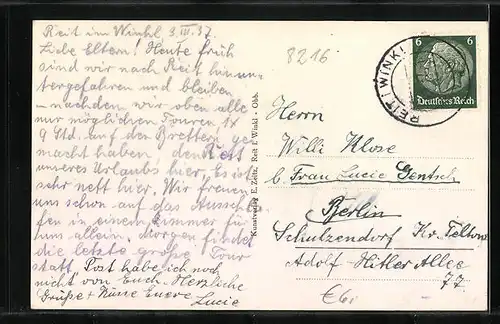 Reit im Winkl 3.III.37.
Liebe Eltern! Heute früh
sind wir nach Reit hinun-
tergefahren und bleiben
- nachdem wir oben alle
nur möglichen Touren 1x
9 Std. auf den Brettern ge-
macht haben, den Rest
unseres Urlaubs hier. Es ist
sehr nett hier. Wir freuen
uns schon auf das Ausschla-
fen in einem Zimmer für
uns allein. Morgen findet
die letzte große Tour
statt. Post habe ich noch
nicht von Euch. Herzliche
Grüße + Küsse Euere
Lucie
Kunstverlag E. Zeitz, Reit i. Winkl - Obb.
8216
REIT I WINKL
6 6
Deutsches Reich
Herrn
Willi Klose
b. Frau Lucie Gentsch
Berlin
Schulzendorf Kr. Teltow
Adolf-Hitler Allee
77.